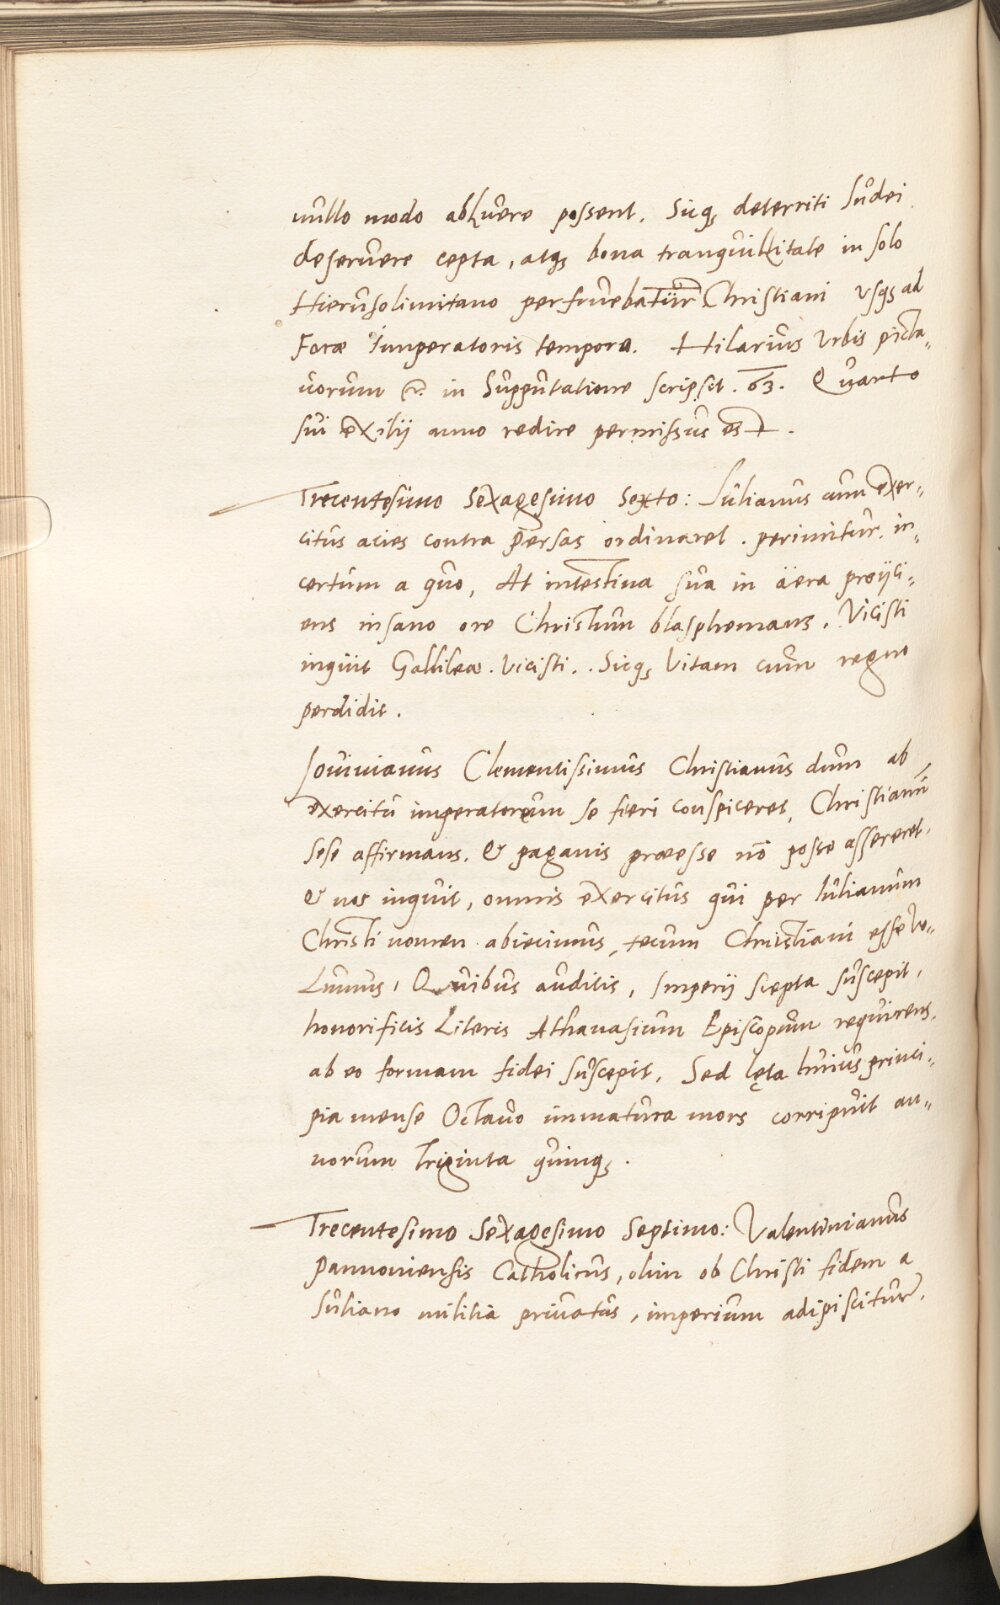 nŭllo modo ablŭere possent. Sicq́ȝ deterriti Iŭdei
deserŭere cepta, atq́ȝ bona tranqŭillitate in solo
Hierŭsolimitano perfrŭebatŭr Christiani vsq́ȝ ad
Focæ Imperatoris tempora. Hilariŭs Vrbis picta„
uorŭm &c. in Sŭppŭtatione scripsit .63. Qŭarto
sŭi exilij anno redire permissŭs est.
Trecentesimo Sexagesimo Sexto: Iŭlianŭs cŭm exer„
citŭs acies contra Persas ordinaret . perimitŭr. in„
certŭm a qŭo, At intestina sŭa in äera proijci„
ens insano ore Christŭm blasphemans. Vicisti
inqŭit Gallilea. Vicisti. . Sicq́ȝ Vitam cŭm regno
perdidit.
Iouinianŭs Clementissimŭs Christianŭs dŭm ab
exercitŭ imperatorem se fieri conspiceret, Christianŭ
sese affirmans. & paganis præesse nō posse assereret.
& nos inqŭit, omnis exercitŭs qŭi per Iŭlianŭm
Christi nomen abiecimŭs, tecum Christiani esse vo„
Lŭmŭs, Qŭibŭs aŭditis, Imperij scepta sŭscepit,
honorificis Literis Athanasiŭm Episcopŭm reqŭirens.
ab eo formam fidei sŭscepit. Sed lęta hŭiŭs princi„
pia mense Octaŭo immatŭra mors corripŭit an„
norŭm Triginta qŭinq́ȝ.
Trecentesimo Sexagesimo Septimo: Valentinianŭs
Pannoniensis Catholicŭs, olim ob Christi fidem a
Iŭliano militia priuatŭs, imperiŭm adipiscitŭr.